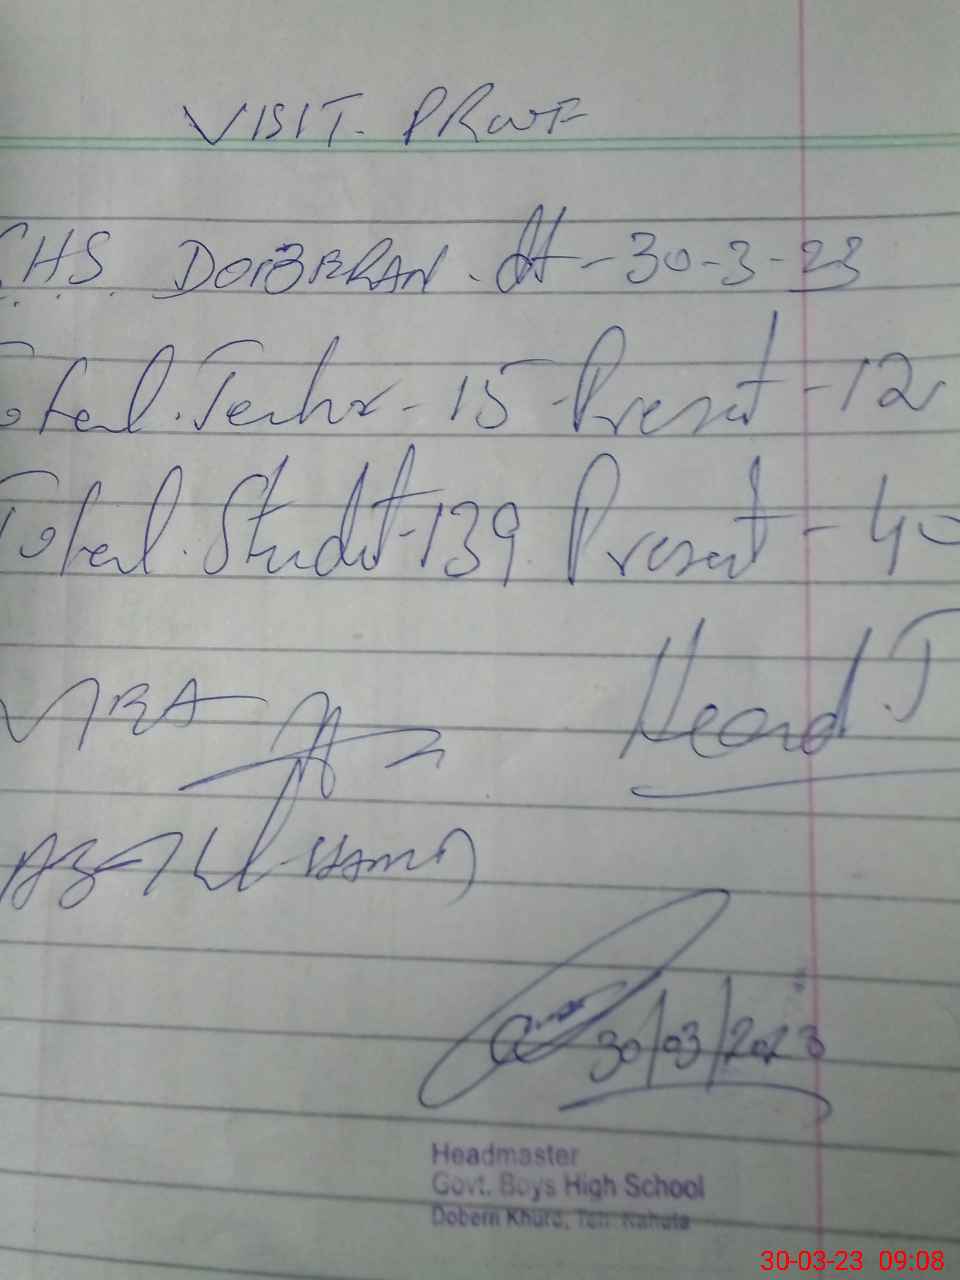 VISIT. PROOF
CHS DOIBERAN. dt - 30-3-23
Total. Teacher - 15 - Present - 12
Total. Student - 139 Present - 40
Head T
30/03/2023
Headmaster
Govt. Boys High School
Dobern Khurd, Teh: Kahuta
30-03-23 09:08